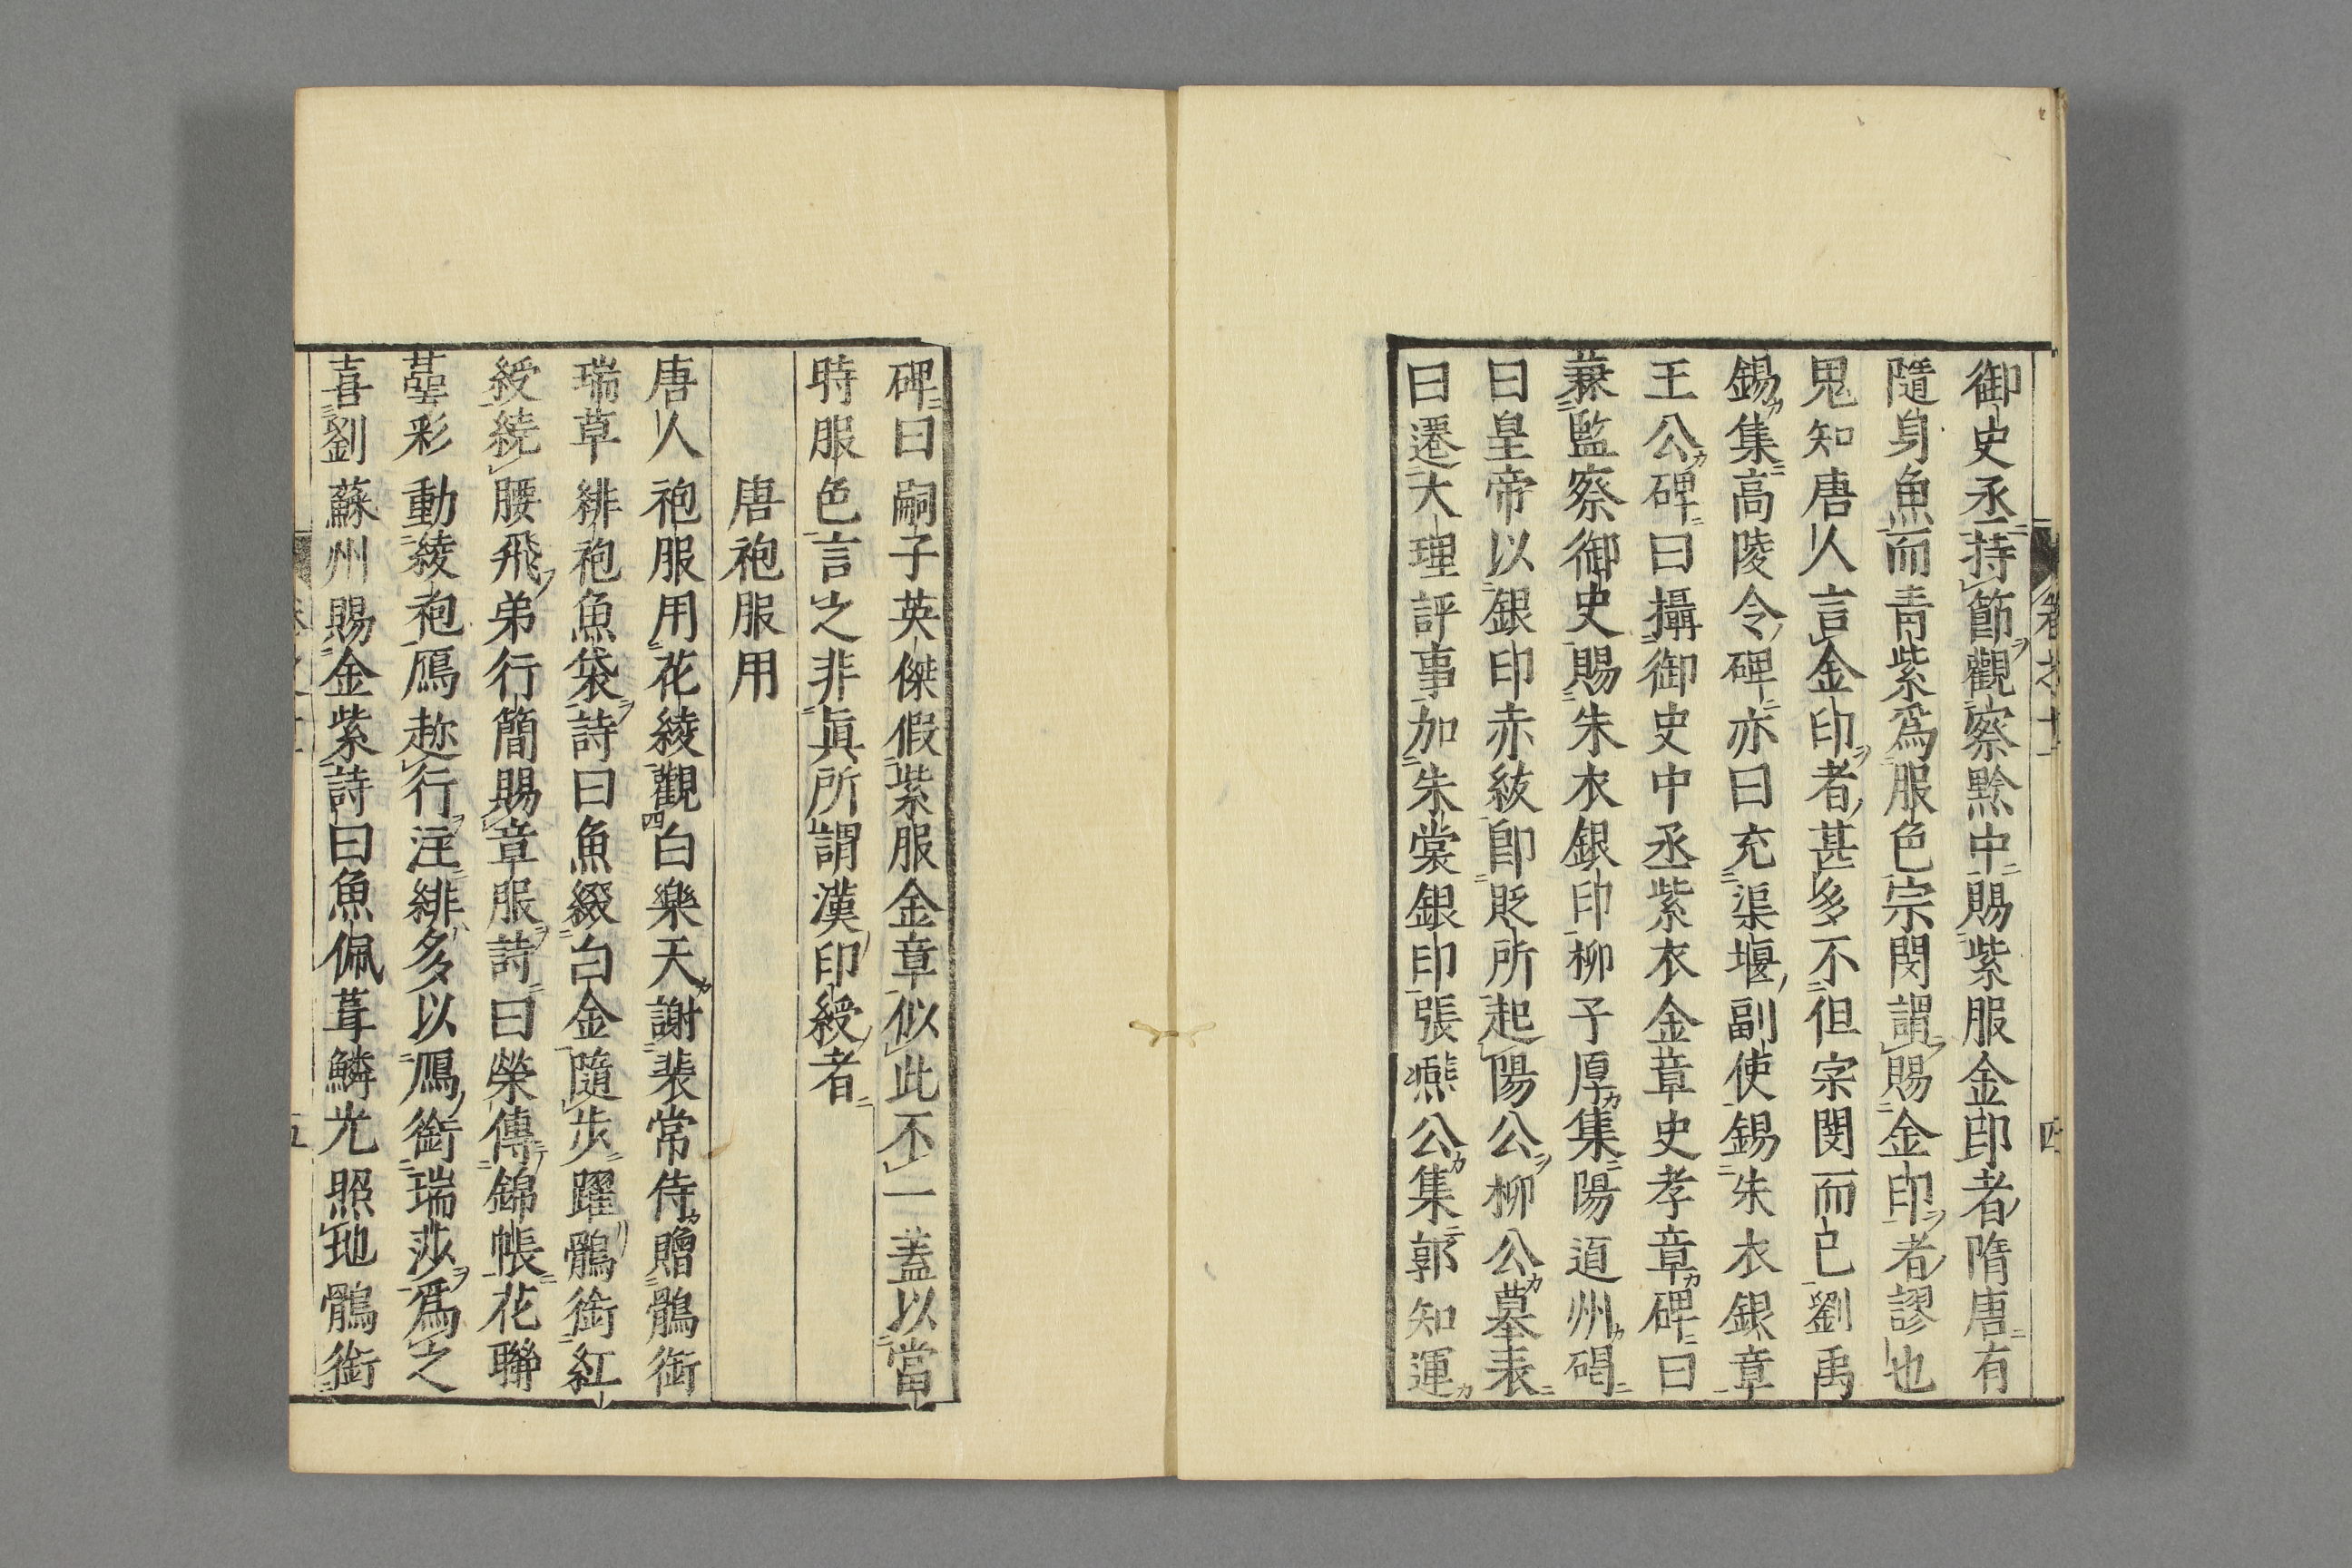 御史丞持節觀察黔中賜紫服金印者隋唐有
隨身魚而青紫爲服色宗閔謂賜金印者謬也
晁知唐人言金印者甚多不但宗閔而已劉禹
錫集高陵令碑亦曰充渠堰副使錫朱衣銀章
王公碑曰攝御史中丞紫衣金章史孝章碑曰
兼監察御史賜朱衣銀印柳子厚集陽道州碣
曰皇帝以銀印赤紱卽貶所起陽公柳公墓表
曰遷大理評事加朱裳銀印張燕公集郭知運
碑曰嗣子英傑假紫服金章似此不一蓋以當
時服色言之非眞所謂漢印綬者
唐袍服用
唐人袍服用花綾觀白樂天謝裴常侍贈鶻銜
瑞草緋袍魚袋詩曰魚綴白金隨步躍鶻銜紅
綬繞腰飛弟行簡賜章服詩曰榮傳錦帳花聯
萼彩動綾袍鴈趂行注緋多以鴈銜瑞莎爲之
喜劉蘇州賜金紫詩曰魚佩葺鱗光照地鶻銜